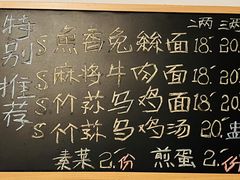 特别推荐
二两 三两
S 魚香兔絲面 18 20
S 麻將牛肉面 18 20
S 竹荪乌鸡面 18 20
S 竹荪乌鸡汤 20 盅
素菜 2 份 煎蛋 2 份